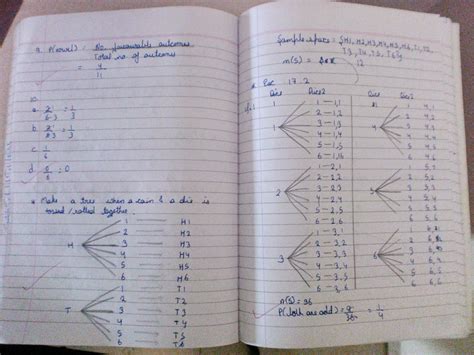 9. P(vowel) = No. favourable outcomes
Total no. of outcomes
= 4
11
10.
a. 2 = 1
6 3 3
b. 2 = 1
3
c. 1
6
d. 0 = 0
6
* Make a tree when a coin & a die is
tossed / rolled together.
H
1 H1
2 H2
3 H3
4 H4
5 H5
6 H6
T
1 T1
2 T2
3 T3
4 T4
5 T5
6 T6
Sample space = {H1, H2, H3, H4, H5, H6, T1, T2,
T3, T4, T5, T6}
n(S) = 12
17.2
Dice Dice 2
1
1 — 1,1
2 — 1,2
3 — 1,3
4 — 1,4
5 — 1,5
6 — 1,6
2
1 — 2,1
2 — 2,2
3 — 2,3
4 — 2,4
5 — 2,5
6 — 2,6
3
1 — 3,1
2 — 3,2
3 — 3,3
4 — 3,4
5 — 3,5
6 — 3,6
Dice Dice 2
4
1 4,1
2 4,2
3 4,3
4 4,4
5 4,5
6 4,6
5
1 5,1
2 5,2
3 5,3
4 5,4
5 5,5
6 5,6
6
1 6,1
2 6,2
3 6,3
4 6,4
5 6,5
6 6,6
n(S) = 36
P(both are odd) = 9 = 1
36 4